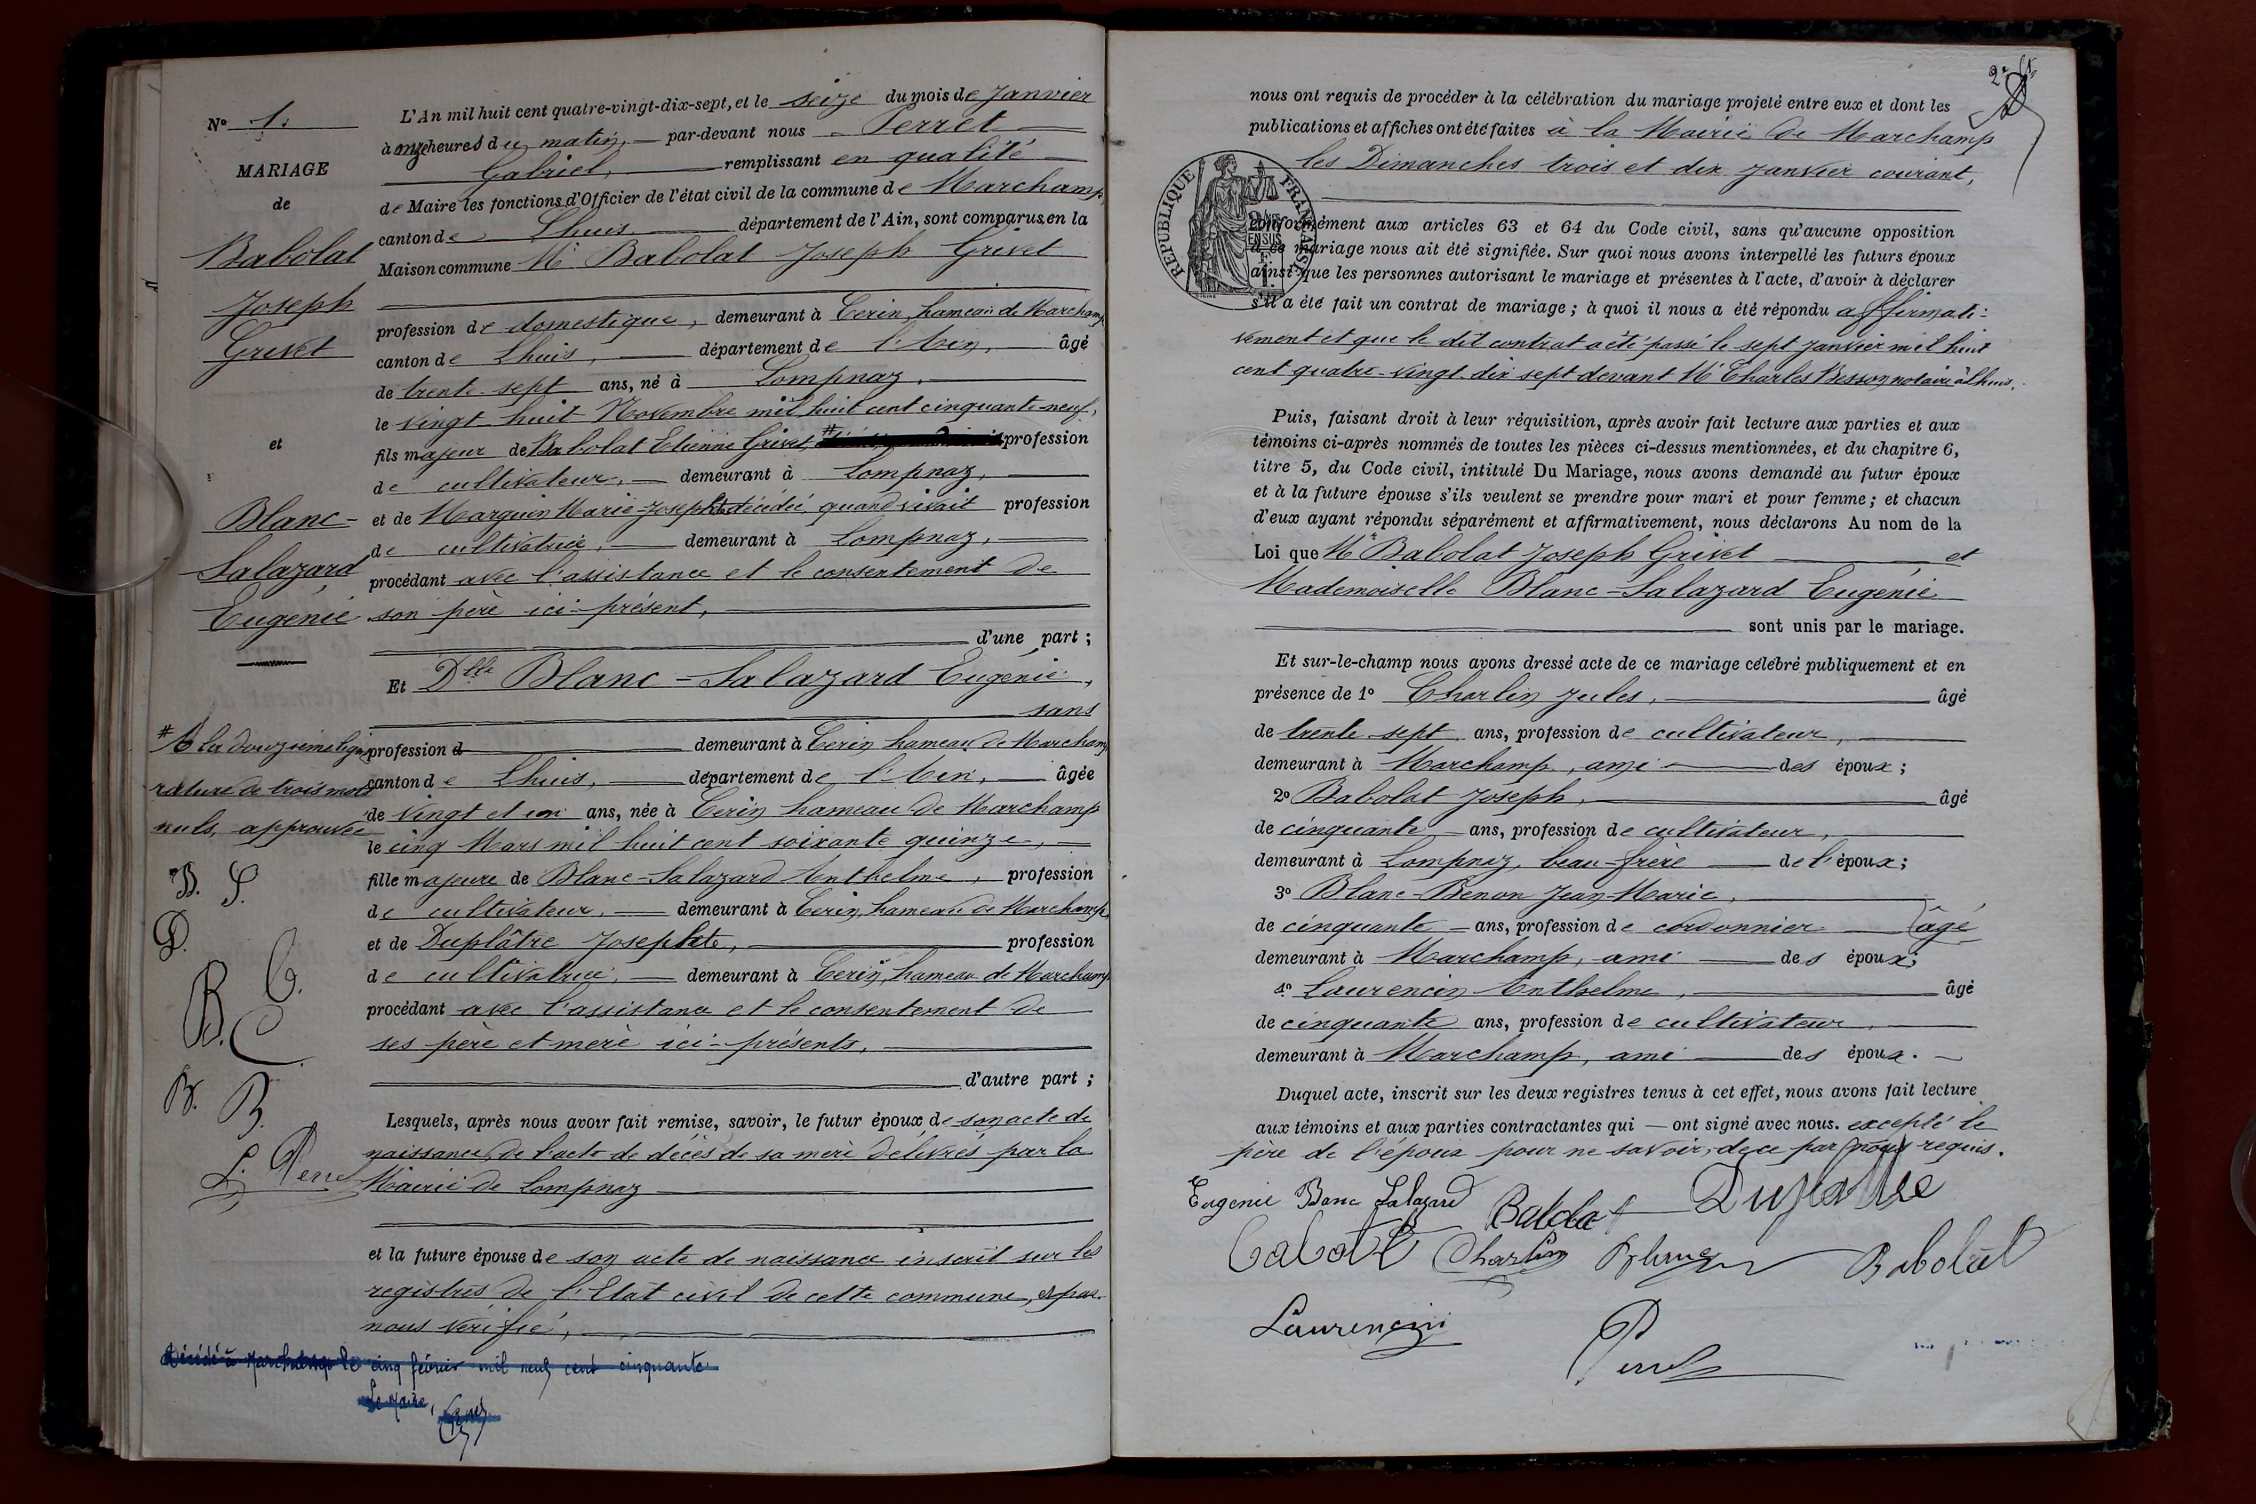 N° 1.
MARIAGE
de
Babolat
Joseph
Grivet
et
Blanc-
Salazard
Eugénie
# A la douzième ligne
rature de trois mots
nuls, approuvée
B. S.
D.
B. C.
C.
B. B.
L. Perret
L'An mil huit cent quatre-vingt-dix-sept, et le seize du mois de Janvier
à onze heures du matin, par-devant nous Perret
Gabriel, remplissant en qualité
de Maire les fonctions d'Officier de l'état civil de la commune de Marchamp,
canton de Lhuis département de l'Ain, sont comparus en la
Maison commune Mr Babolat Joseph Grivet
profession de domestique, demeurant à Cerin, hameau de Marchamp
canton de Lhuis, département de l'Ain, âgé
de trente-sept ans, né à Lompnaz,
le vingt-huit Novembre mil huit cent cinquante-neuf,
fils majeur de Babolat Etienne Grivet, # profession
de cultivateur, demeurant à Lompnaz,
et de Marguin Marie-Josephte décédée quand vivait profession
de cultivatrice, demeurant à Lompnaz,
procédant avec l'assistance et le consentement de
son père ici-présent,
d'une part ;
Et Dlle Blanc-Salazard Eugénie,
sans
profession d demeurant à Cerin hameau de Marchamp
canton de Lhuis, département de l'Ain, âgée
de vingt et un ans, née à Cerin hameau de Marchamp
le cinq Mars mil huit cent soixante quinze,
fille majeure de Blanc-Salazard Anthelme, profession
de cultivateur, demeurant à Cerin, hameau de Marchamp
et de Duplâtre Josephte, profession
de cultivatrice, demeurant à Cerin, hameau de Marchamp
procédant avec l'assistance et le consentement de
ses père et mère ici-présents,
d'autre part ;
Lesquels, après nous avoir fait remise, savoir, le futur époux de son acte de
naissance, de l'acte de décès de sa mère délivrés par la
Mairie de Lompnaz
et la future épouse de son acte de naissance inscrit sur les
registres de l'Etat civil de cette commune, et par
nous vérifié,
Décédé à Marchamp le cinq février mil neuf cent cinquante
Le Maire,
2e
nous ont requis de procéder à la célébration du mariage projeté entre eux et dont les
publications et affiches ont été faites à la Mairie de Marchamp
les Dimanches trois et dix Janvier courant,
RÉPUBLIQUE FRANÇAISE
EN SUS
conformément aux articles 63 et 64 du Code civil, sans qu'aucune opposition
à ce mariage nous ait été signifiée. Sur quoi nous avons interpellé les futurs époux
ainsi que les personnes autorisant le mariage et présentes à l'acte, d'avoir à déclarer
s'il a été fait un contrat de mariage ; à quoi il nous a été répondu affirmati-
vement et que le dit contrat a été passé le sept janvier mil huit
cent quatre-vingt-dix sept devant Me Charles Besson notaire à Lhuis.
Puis, faisant droit à leur réquisition, après avoir fait lecture aux parties et aux
témoins ci-après nommés de toutes les pièces ci-dessus mentionnées, et du chapitre 6,
titre 5, du Code civil, intitulé Du Mariage, nous avons demandé au futur époux
et à la future épouse s'ils veulent se prendre pour mari et pour femme ; et chacun
d'eux ayant répondu séparément et affirmativement, nous déclarons Au nom de la
Loi que Mr Babolat Joseph Grivet et
Mademoiselle Blanc-Salazard Eugénie
sont unis par le mariage.
Et sur-le-champ nous avons dressé acte de ce mariage célébré publiquement et en
présence de 1° Charlin Jules, âgé
de trente-sept ans, profession de cultivateur,
demeurant à Marchamp, ami des époux ;
2° Babolat Joseph, âgé
de cinquante ans, profession de cultivateur,
demeurant à Lompnaz, beau-frère de l'époux ;
3° Blanc-Benon Jean-Marie,
de cinquante ans, profession de cordonnier âgé
demeurant à Marchamp, ami des époux ;
4° Laurencin Anthelme, âgé
de cinquante ans, profession de cultivateur,
demeurant à Marchamp, ami des époux.
Duquel acte, inscrit sur les deux registres tenus à cet effet, nous avons fait lecture
aux témoins et aux parties contractantes qui ont signé avec nous. excepté le
père de l'époux pour ne savoir, de ce par nous requis.
Eugenie Banc Salazard Babolat Duplatre
Charlin Blanc Babolat
Laurencin
Perret